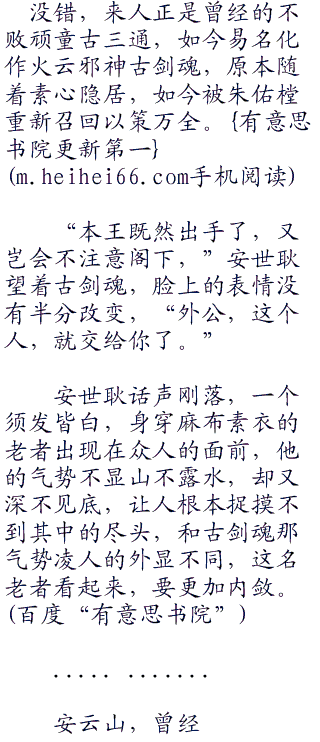 没错，来人正是曾经的不
败顽童古三通，如今易名化
作火云邪神古剑魂，原本随
着素心隐居，如今被朱佑樘
重新召回以策万全。{有意思
书院更新第一}
(m.heihei66.com手机阅读)
“本王既然出手了，又
岂会不注意阁下，”安世耿
望着古剑魂，脸上的表情没
有半分改变，“外公，这个
人，就交给你了。”
安世耿话声刚落，一个
须发皆白，身穿麻布素衣的
老者出现在众人的面前，他
的气势不显山不露水，却又
深不见底，让人根本捉摸不
到其中的尽头，和古剑魂那
气势凌人的外显不同，这名
老者看起来，要更加内敛。
(百度“有意思书院”)
····· ·······
安云山，曾经